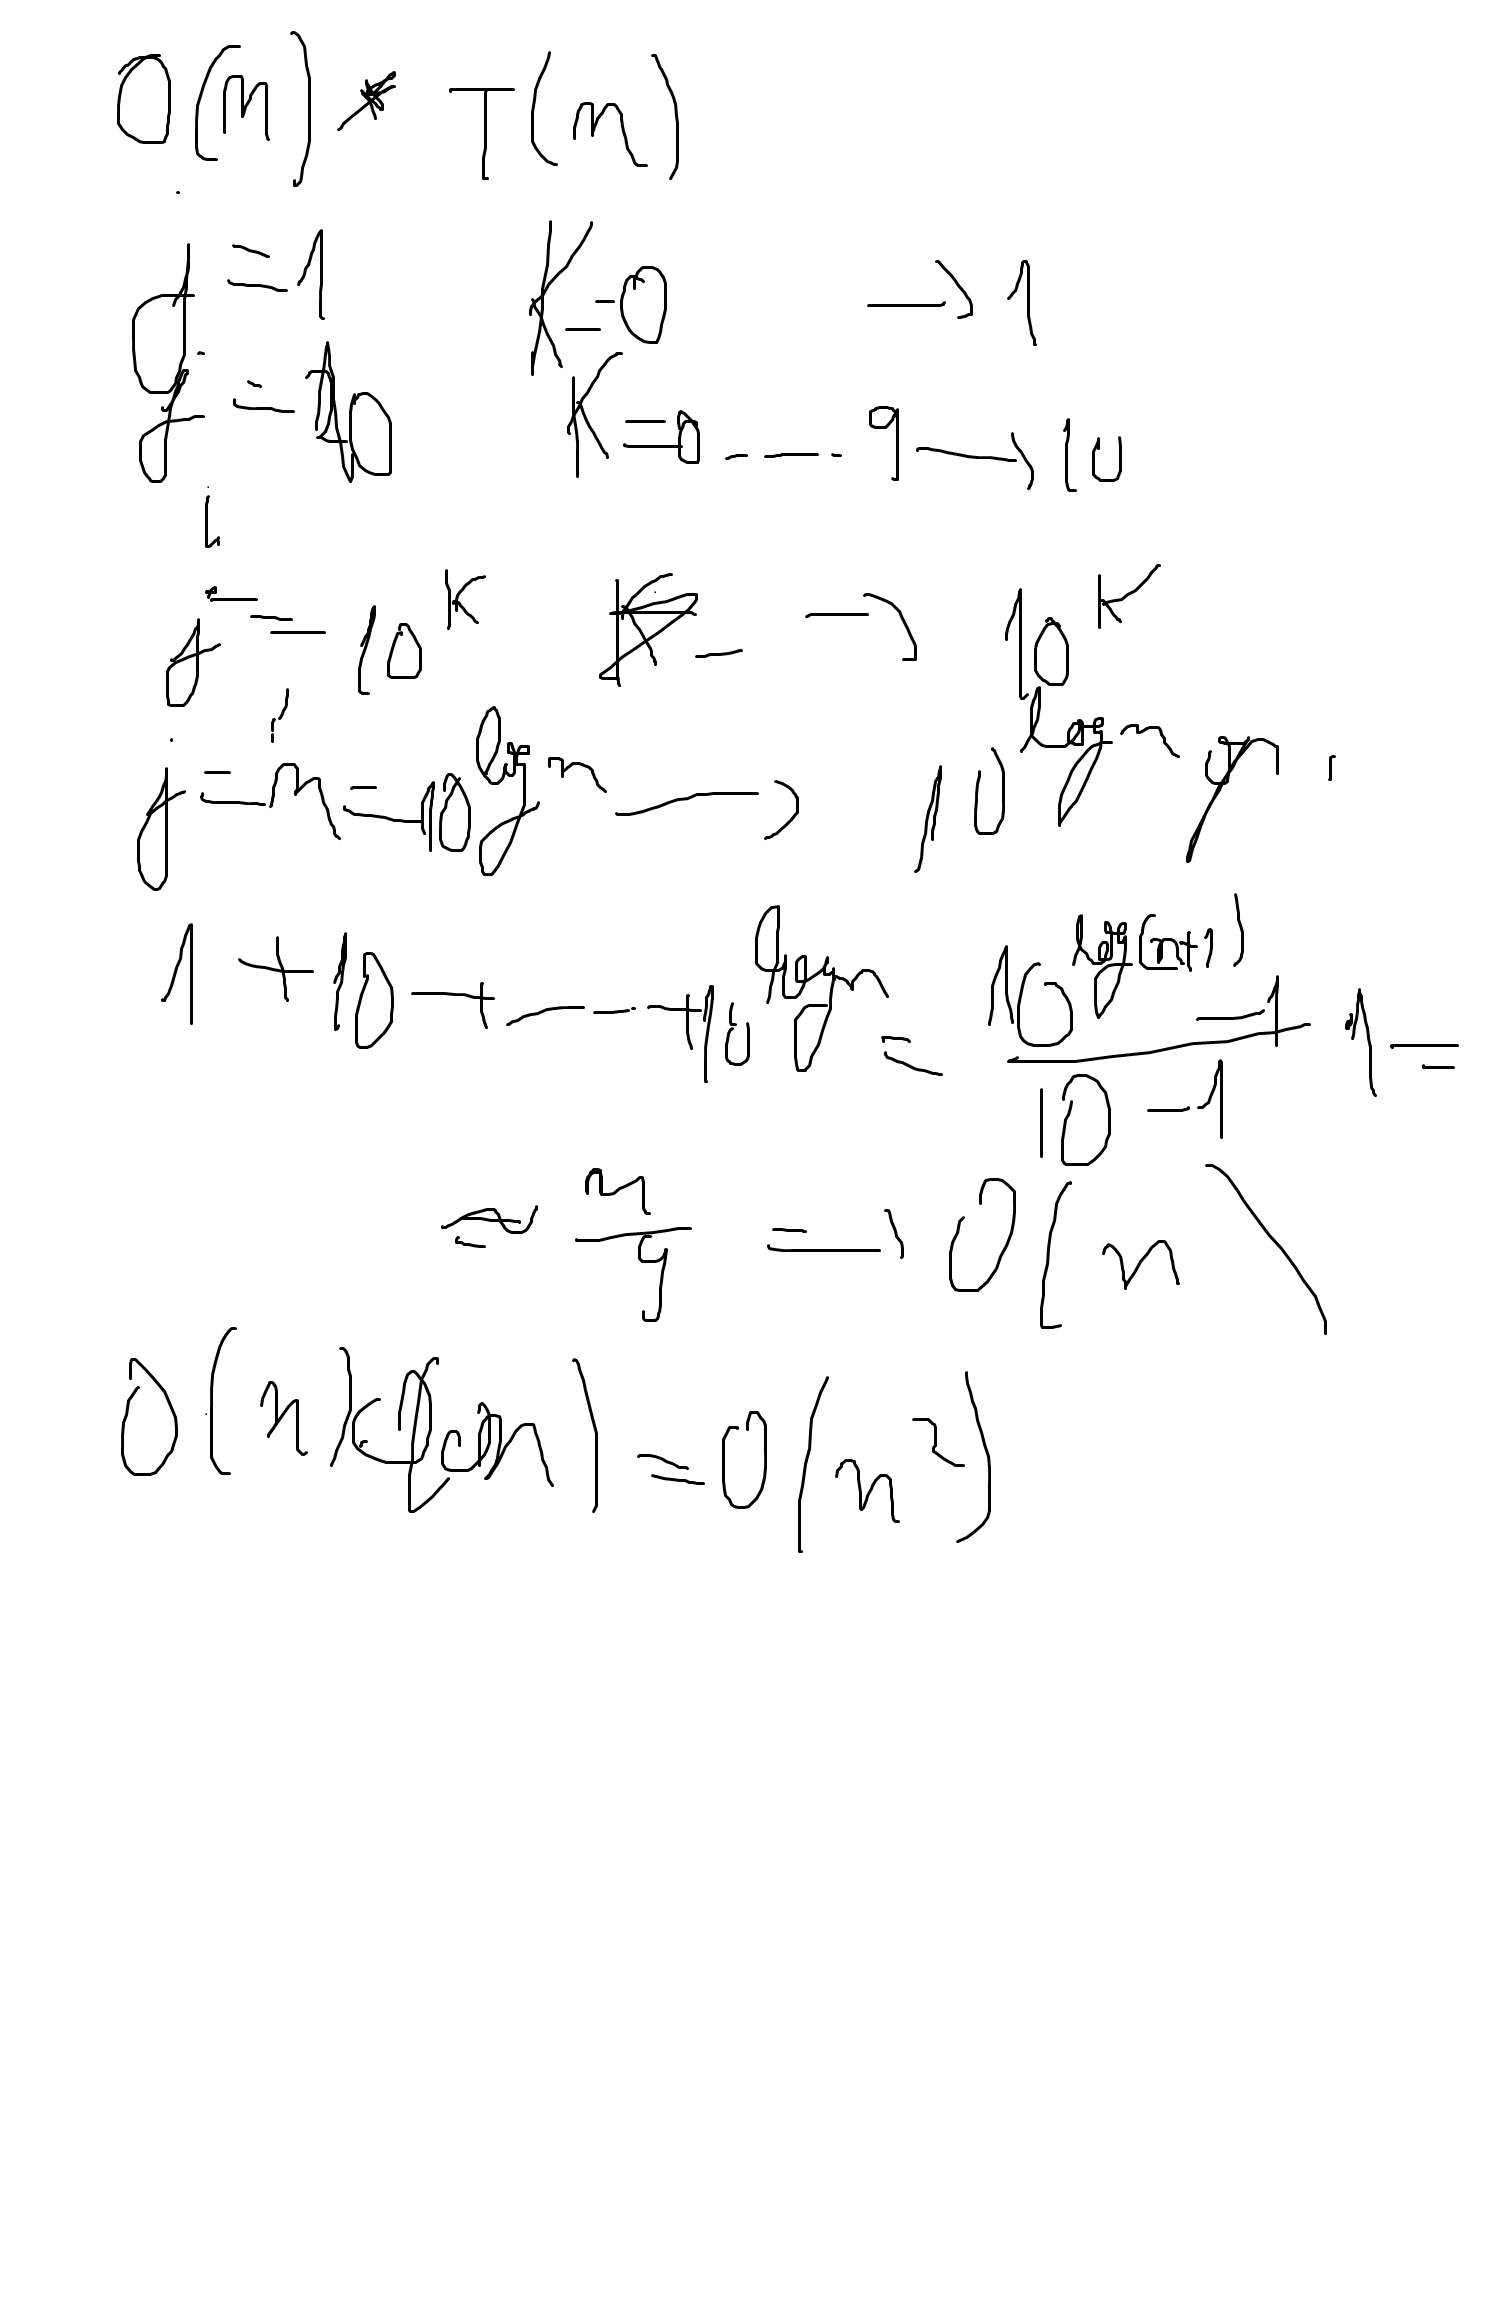 O(n) * T(n)
j = 1 K = 0 → 1
j = 10 K = 0 ---- 9 → 10
j = 10^K → 10^K
j = n = 10^log n → 10^log n
1 + 10 + ---- + 10^log n = (10^log(n+1) - 1) / (10 - 1) · 1 =
≈ n/9 => O(n)
O(n) = O(n²)